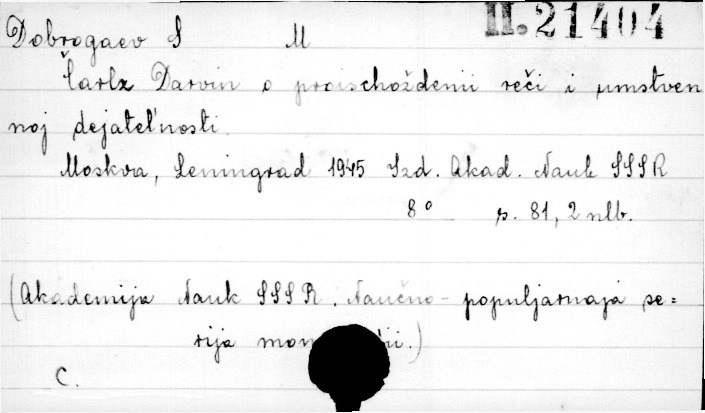 II. 21404
Dobrogaev S M
Čarlz Darvin o proischoždenii reči i umstven
noj dejatel'nosti.
Moskva, Leningrad 1945 Izd. Akad. Nauk SSSR
8° p. 81, 2 nlb.
(Akademija Nauk SSSR. Naučno-populjarnaja se=
rija
C.